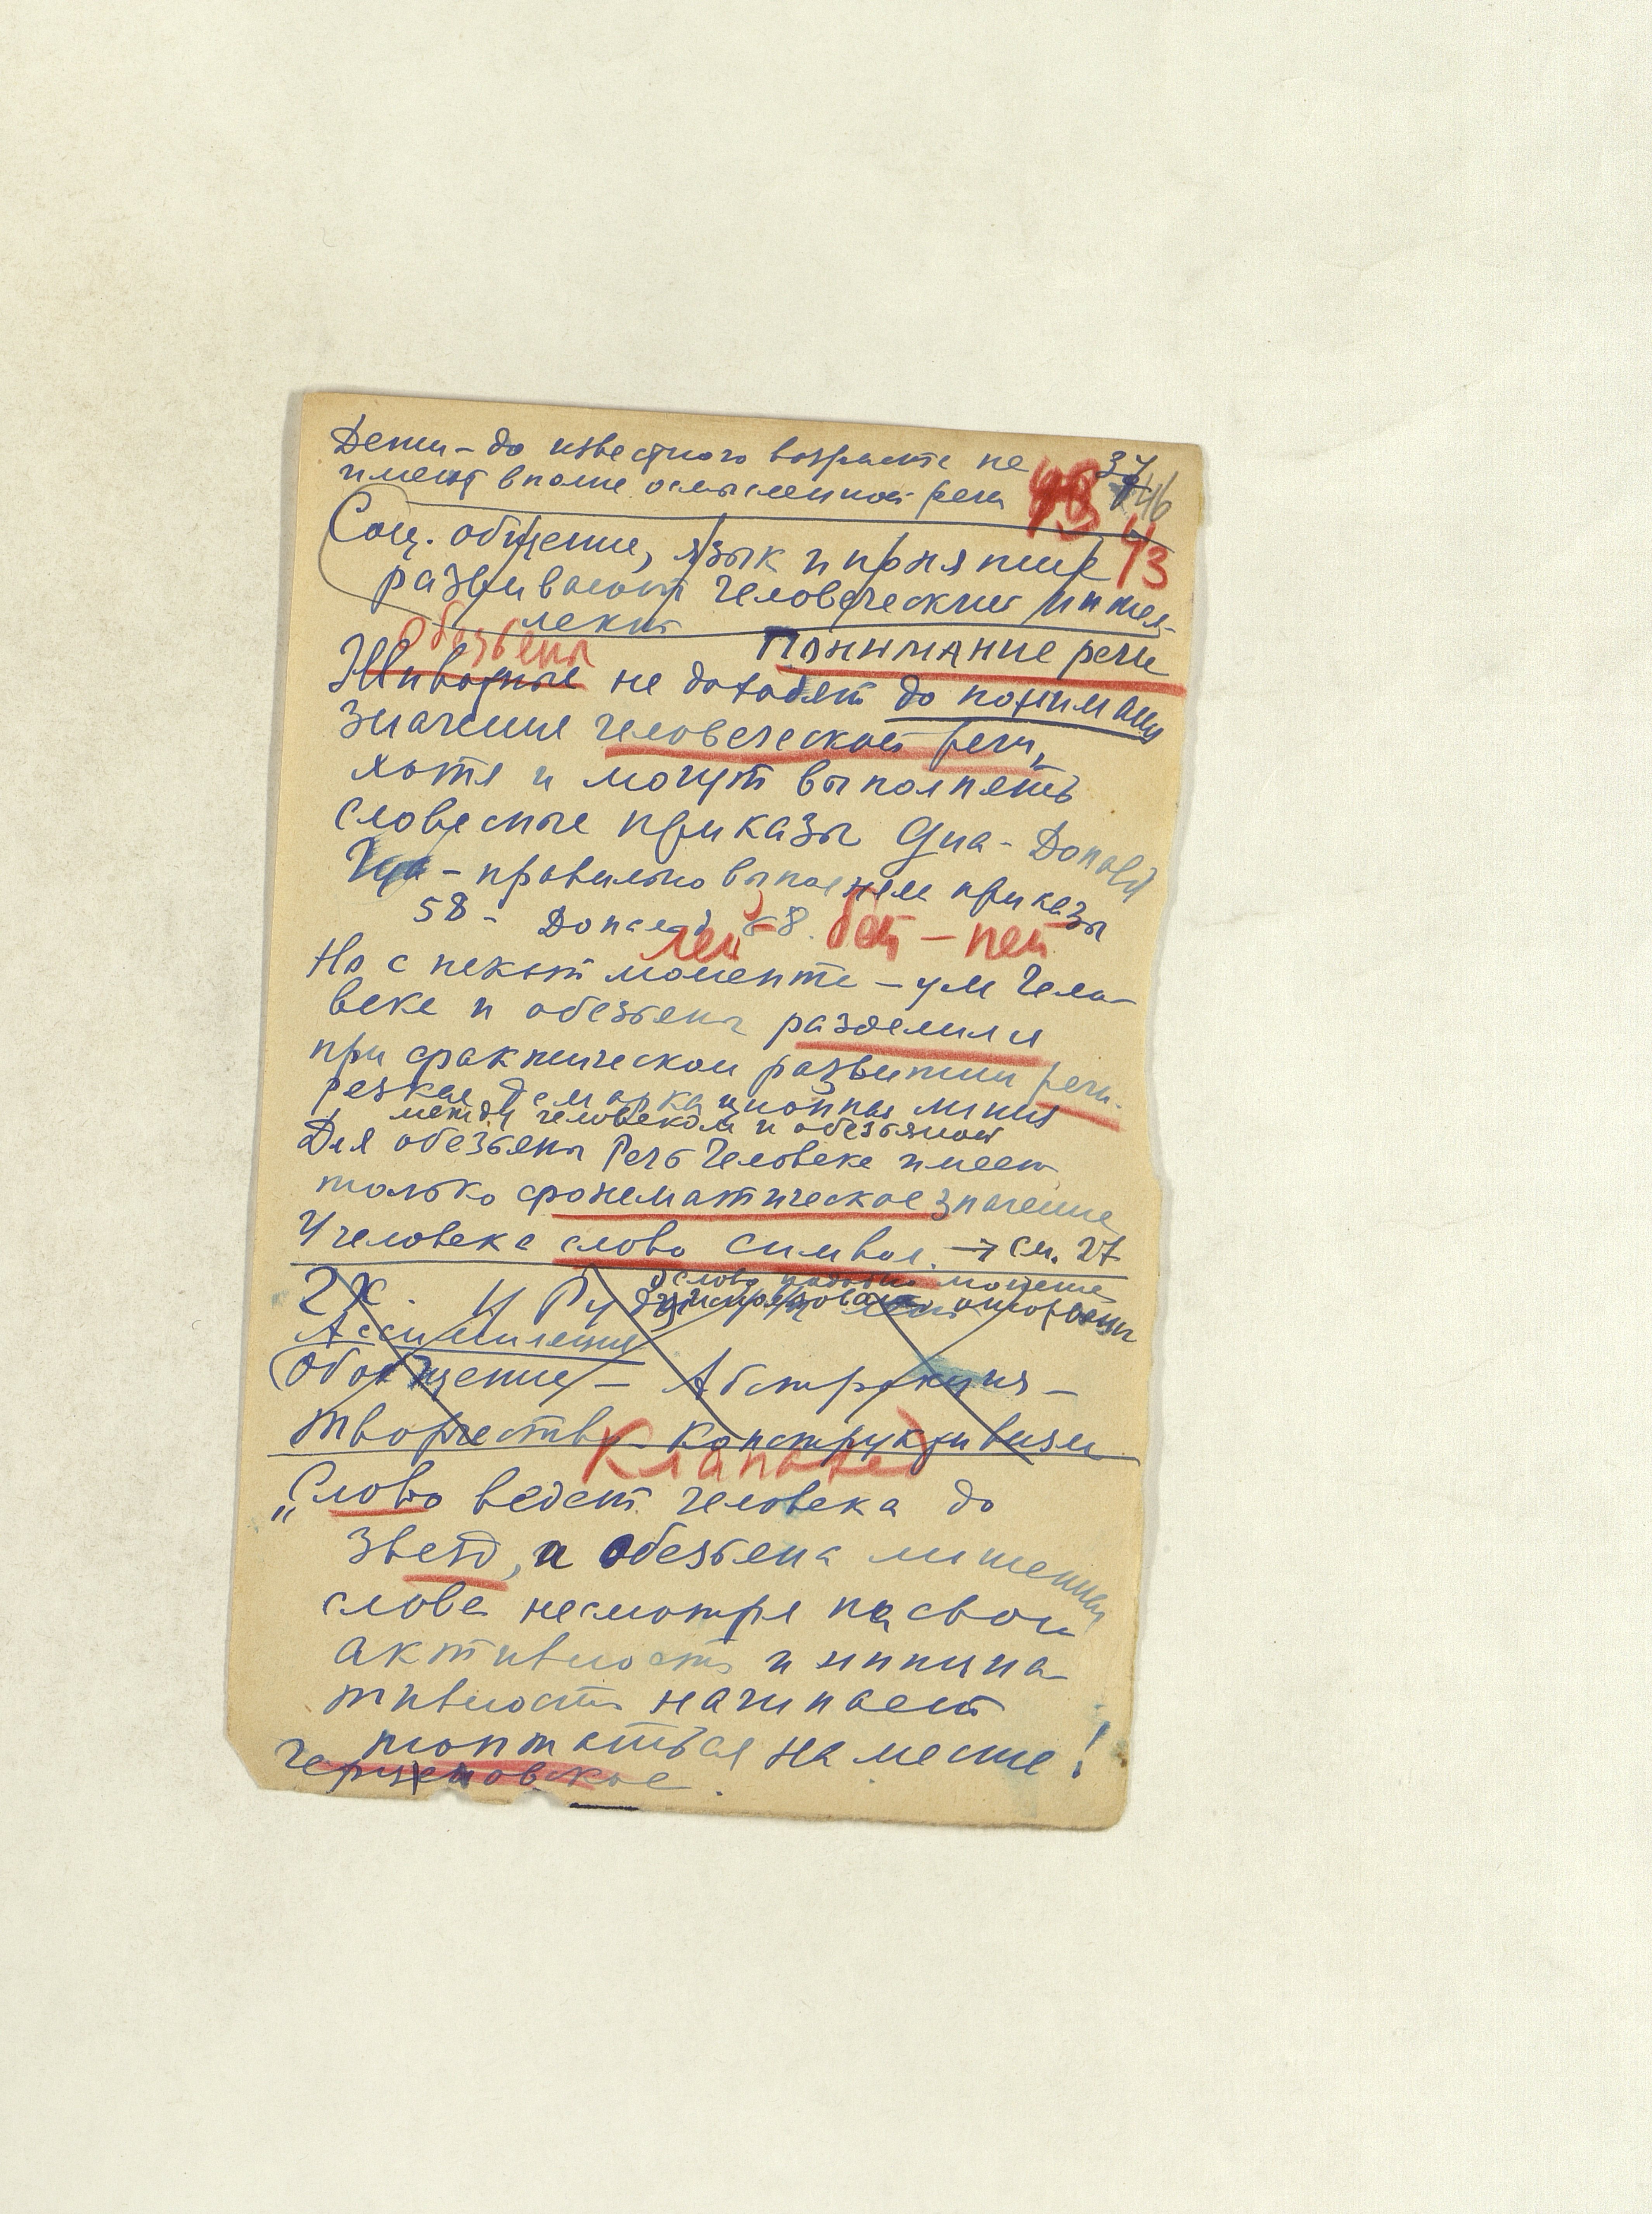 Дети – до известного возраста не
имеют вполне осмысленной речи
37
46
43
Соц. общение, язык и понятия
развивают человеческий интел-
лект
Обезьяны
Понимание речи
Животные не доходят до понимания
значения человеческой речи,
хотя и могут выполнять
словесные приказы Gua - Donald
Гуа - правильно выполняла приказы
58 - Дональд 68.
лей бей – пей
Но с момента – ум Чело-
века и обезьяны разделился
при фактическом развитии речи.
резкая демаркационная линия
между человеком и обезьяной
Для обезьяны Речь Человека имеет
только фонематическое значение
У человека слово символ. → см. 27
2х. и
слово
Ассимиляция
Обобщение – Абстракция –
творчество – конструктивизм
„Слово ведет человека до
звезд, а обезьяна лишенная
слова несмотря на свою
активность и инициа-
тивность начинает
топтаться на месте!